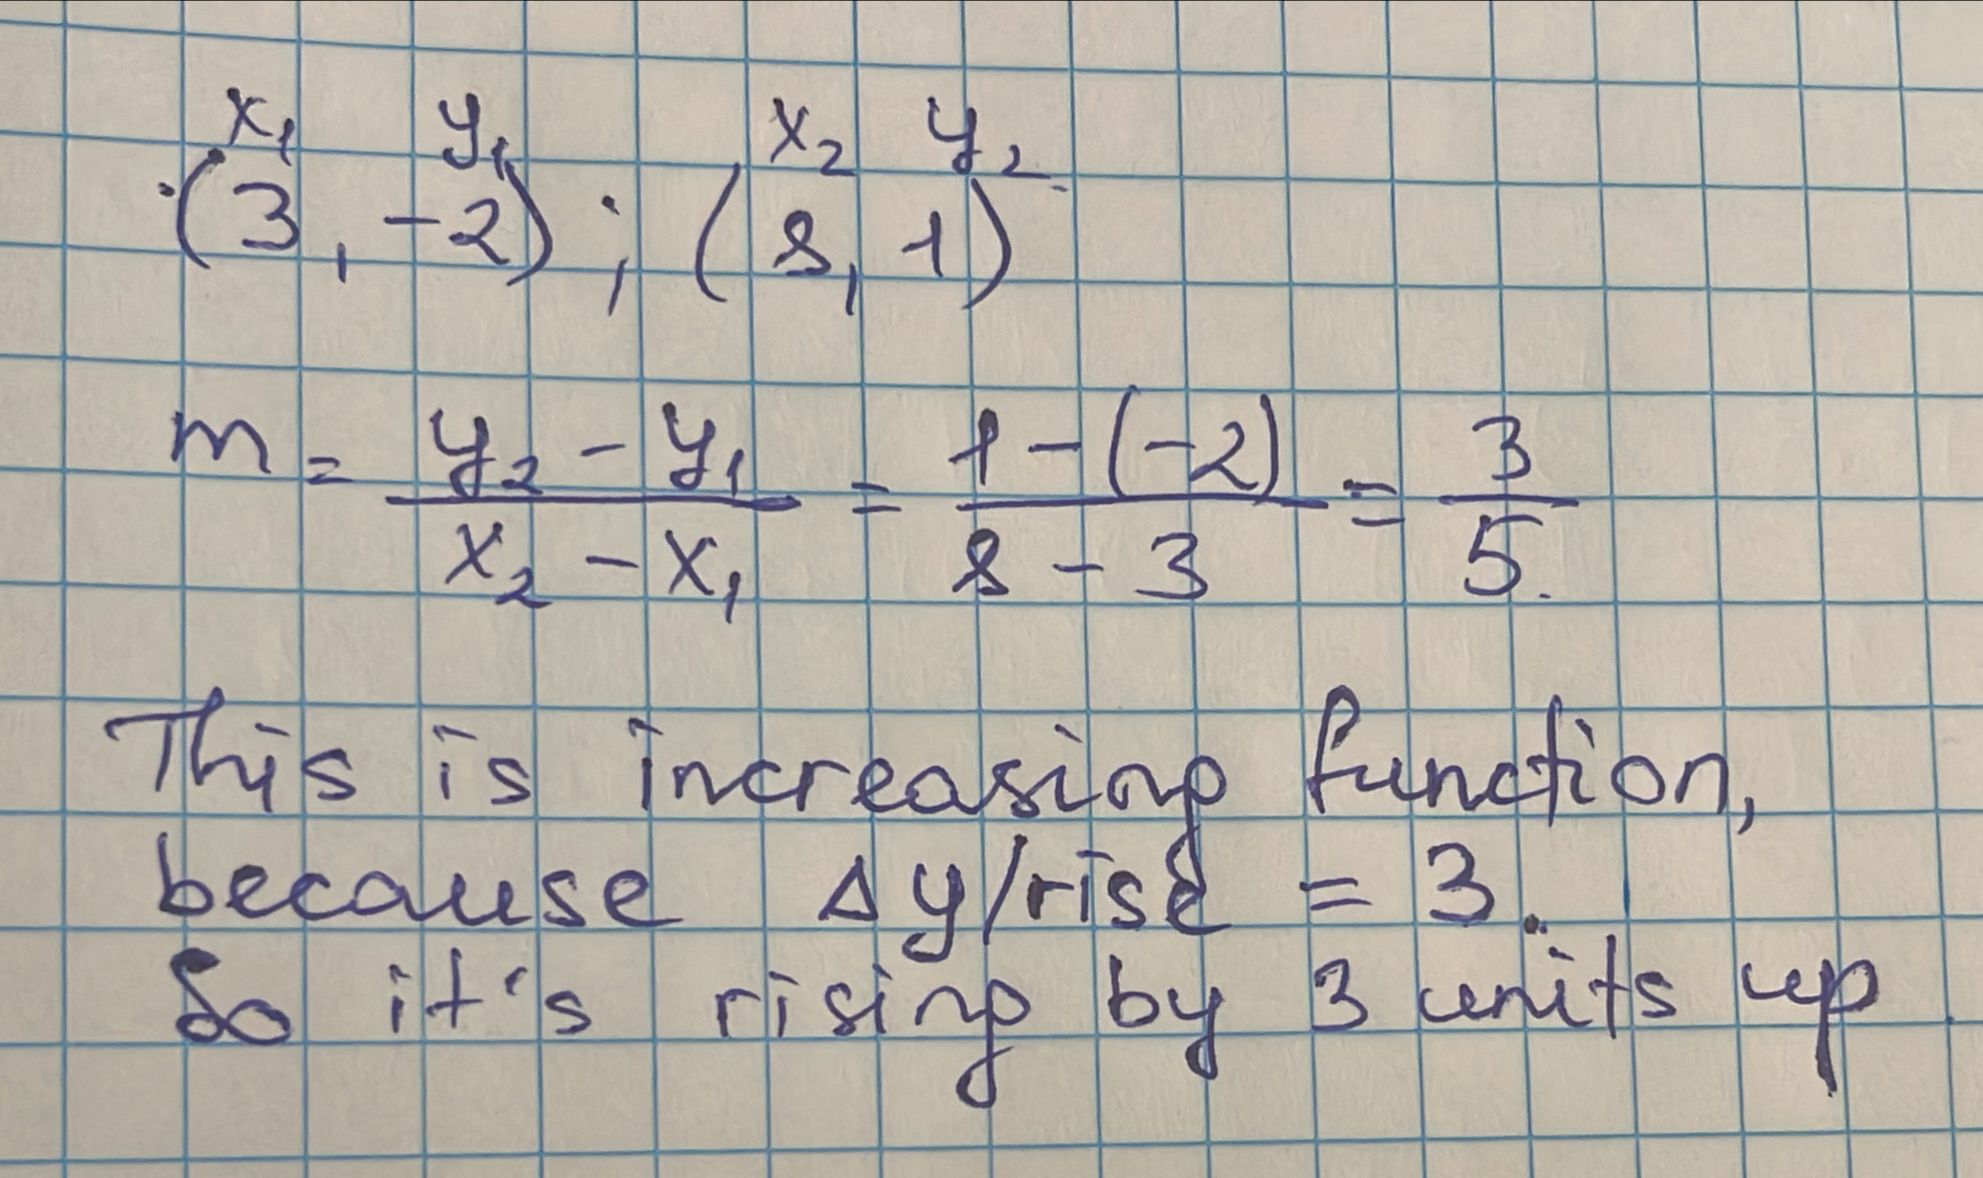 x₁ y₁ x₂ y₂
(3, -2); (8, 1)
m = (y₂ - y₁)/(x₂ - x₁) = (1 - (-2))/(8 - 3) = 3/5.
This is increasing function,
because Δy/rise = 3.
So it's rising by 3 units up.